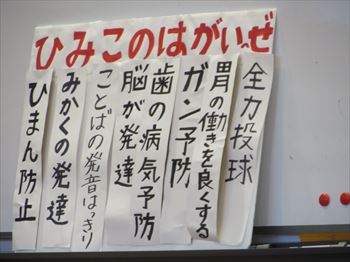 ひみこのはがいーぜ
ひまん防止
みかくの発達
ことばの発音はっきり
脳が発達
歯の病気予防
ガン予防
胃の働きを良くする
全力投球